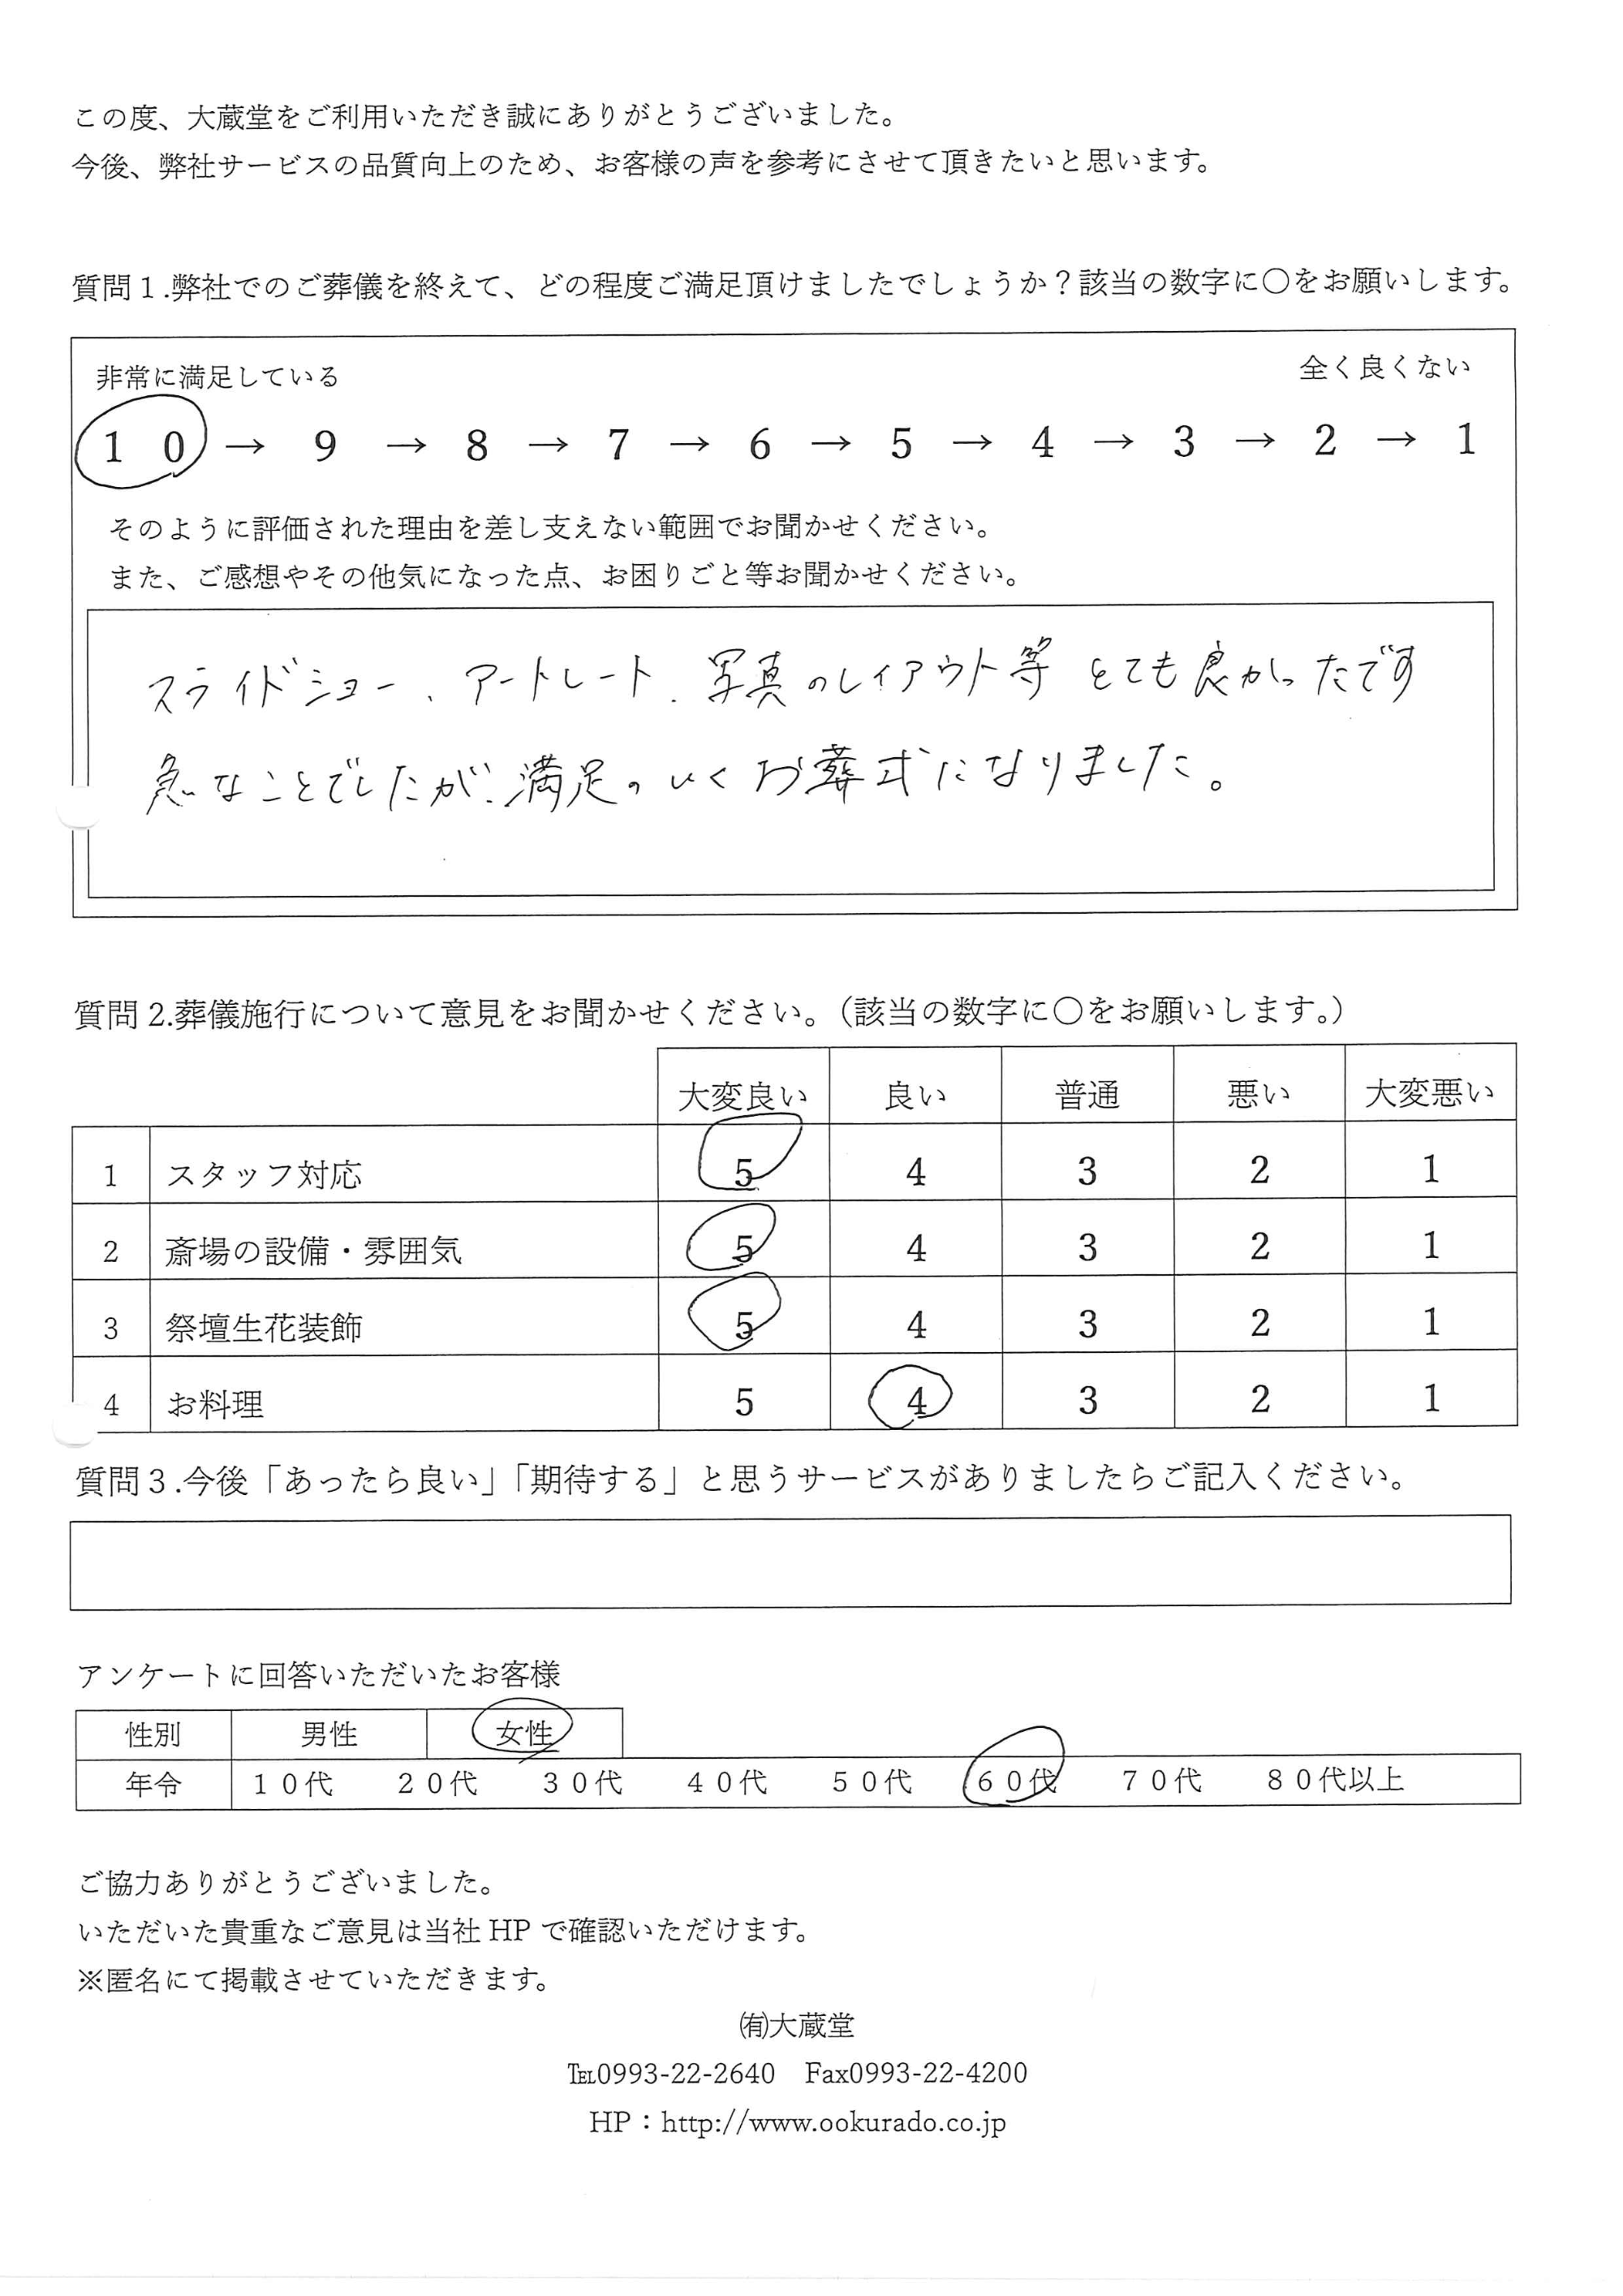 この度、大蔵堂をご利用いただき誠にありがとうございました。
今後、弊社サービスの品質向上のため、お客様の声を参考にさせて頂きたいと思います。
質問１.弊社でのご葬儀を終えて、どの程度ご満足頂けましたでしょうか？該当の数字に〇をお願いします。
非常に満足している 全く良くない
１０ → 9 → 8 → 7 → 6 → 5 → 4 → 3 → 2 → 1
そのように評価された理由を差し支えない範囲でお聞かせください。
また、ご感想やその他気になった点、お困りごと等お聞かせください。
スライドショー、アートレート、写真のレイアウト等 とても良かったです
急なことでしたが、満足のいくお葬式になりました。
質問 2.葬儀施行について意見をお聞かせください。（該当の数字に〇をお願いします。）
大変良い 良い 普通 悪い 大変悪い
1 スタッフ対応 5 4 3 2 1
2 斎場の設備・雰囲気 5 4 3 2 1
3 祭壇生花装飾 5 4 3 2 1
4 お料理 5 4 3 2 1
質問３.今後「あったら良い」「期待する」と思うサービスがありましたらご記入ください。
アンケートに回答いただいたお客様
性別 男性 女性
年令 １０代 ２０代 ３０代 ４０代 ５０代 ６０代 ７０代 ８０代以上
ご協力ありがとうございました。
いただいた貴重なご意見は当社 HP で確認いただけます。
※匿名にて掲載させていただきます。
㈲大蔵堂
℡0993-22-2640　Fax0993-22-4200
HP：http://www.ookurado.co.jp